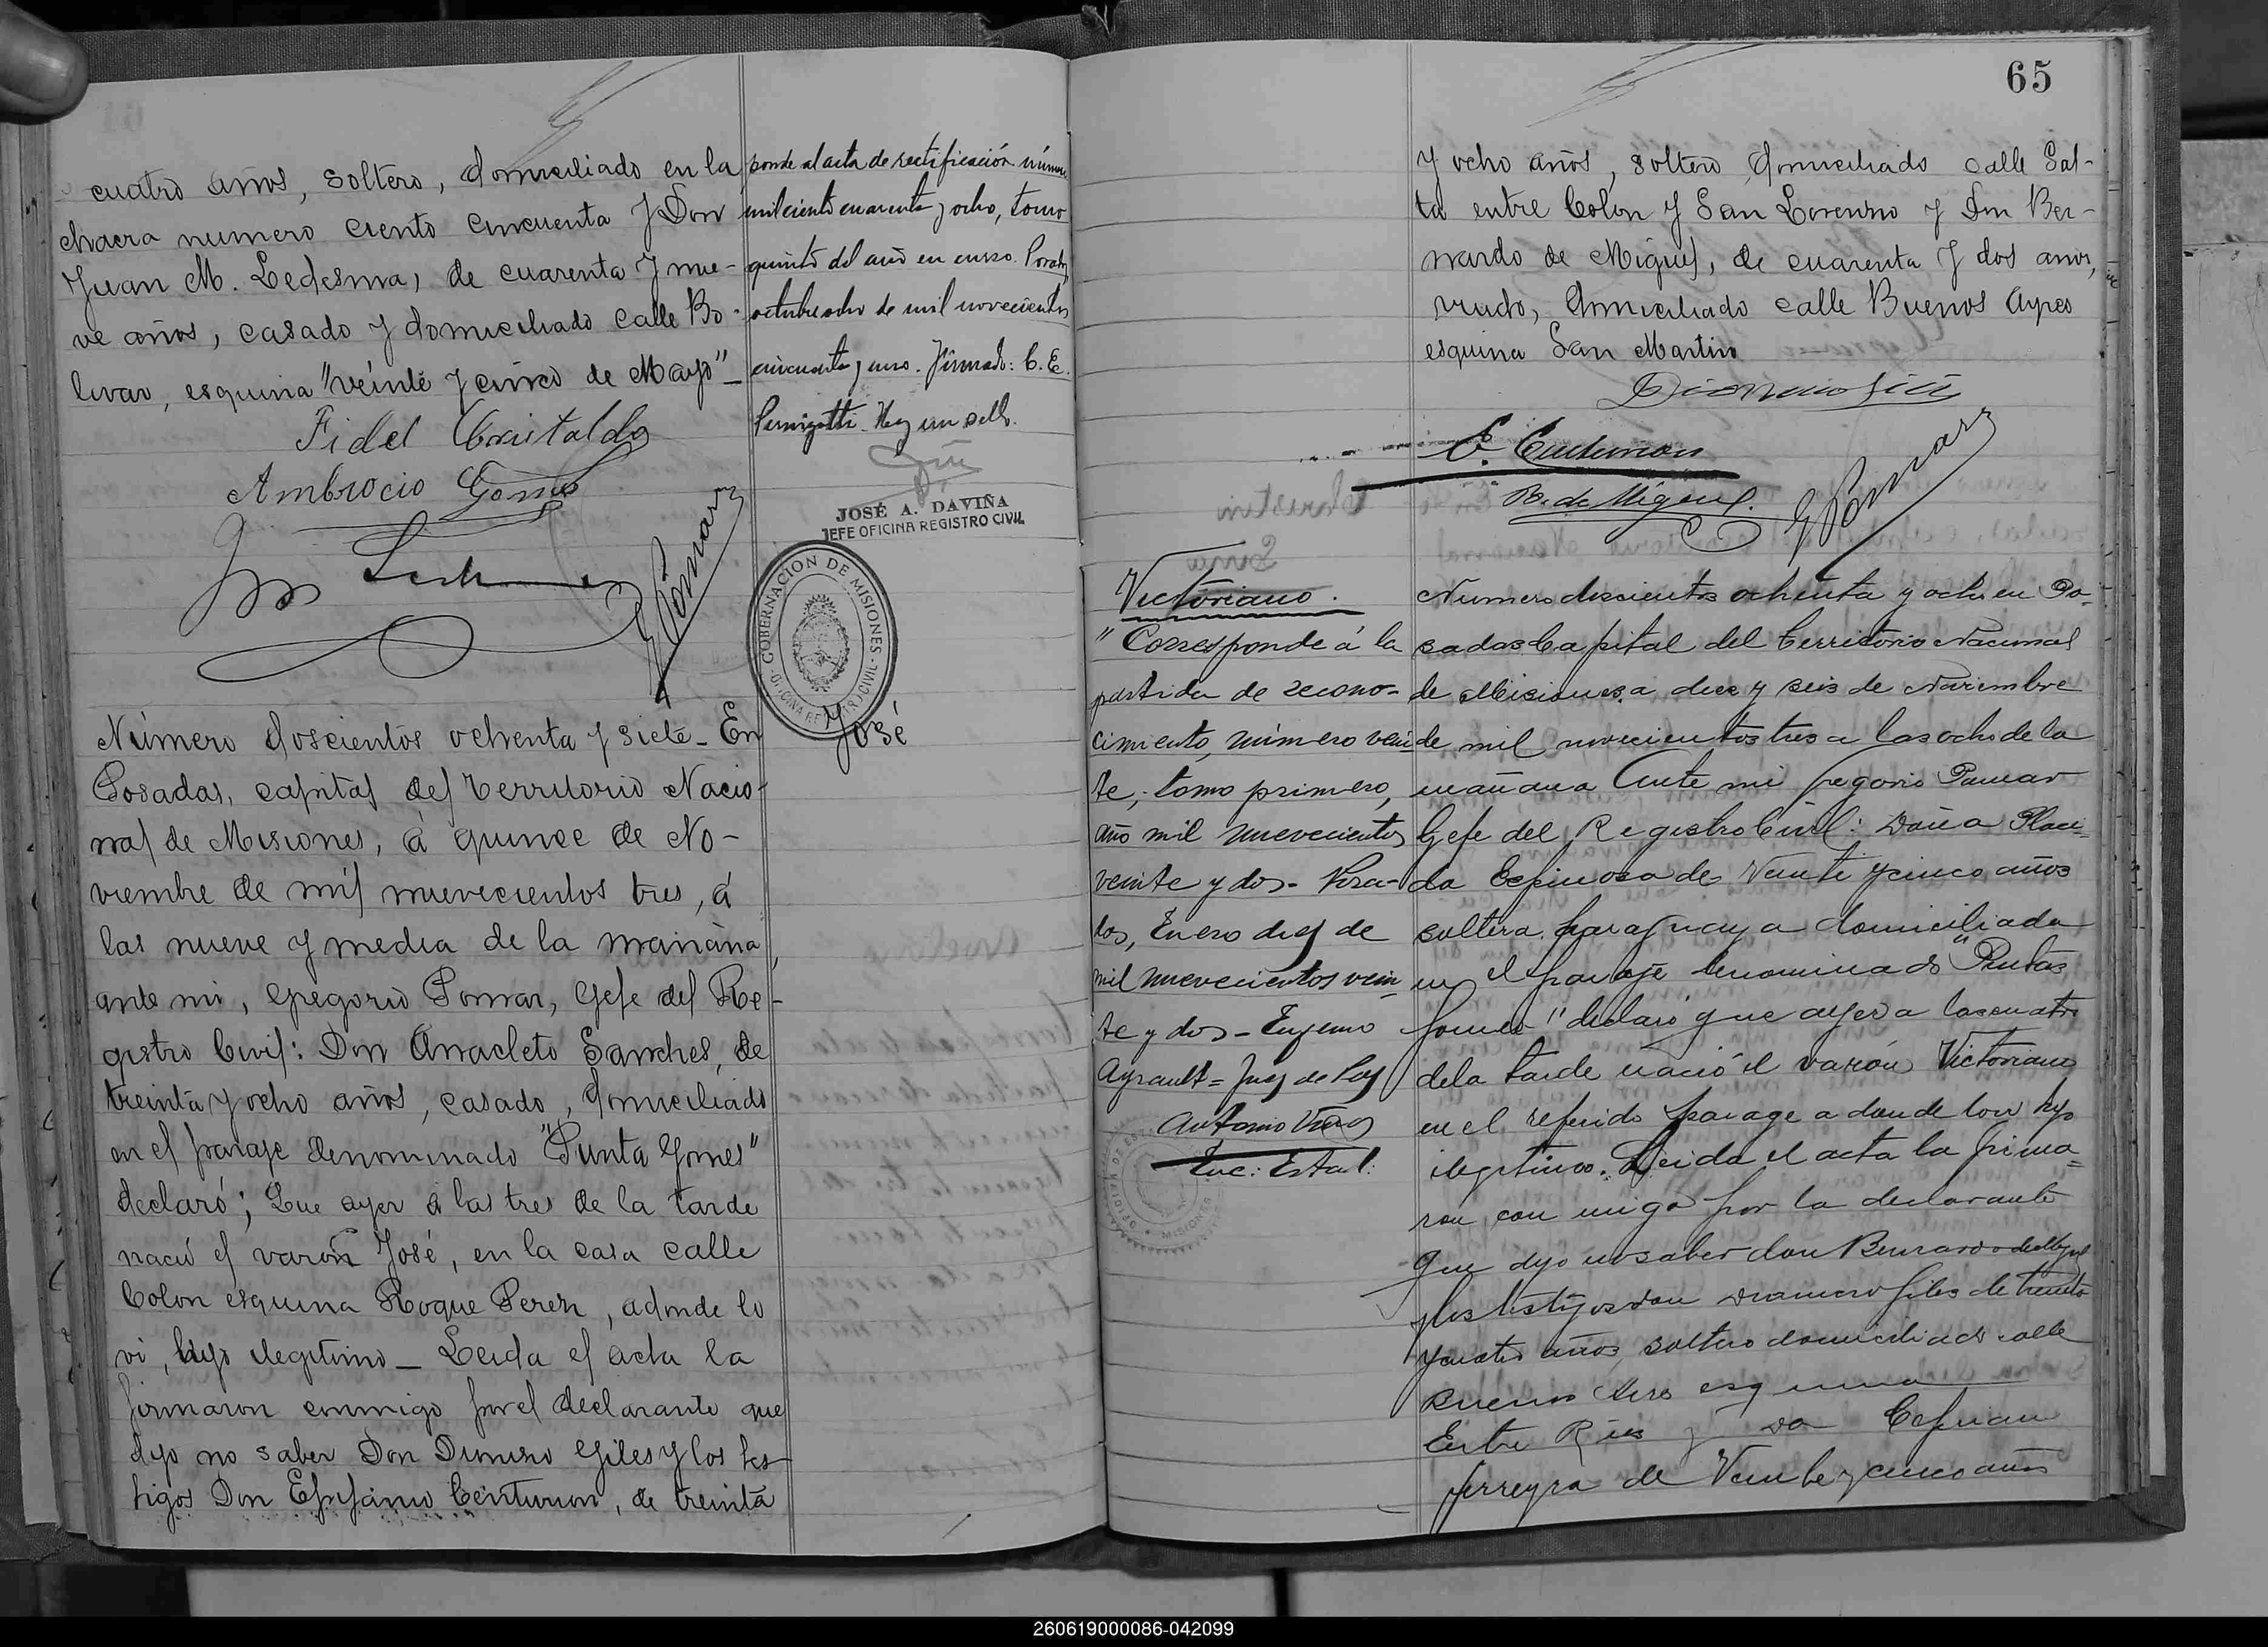 cuatro años, soltero, domiciliado en la
chacra numero ciento cincuenta y Don
Juan M. Ledesma, de cuarenta y nue-
ve años, casado y domiciliado calle Bo-
livar, esquina "veinte y cinco de Mayo"_
Fidel Cristaldo
Ambrocio Gomes
G Pomar
Número doscientos ochenta y siete_ En
Posadas, capital del territorio Nacio-
nal de Misiones, á quince de No-
viembre de mil nuevecientos tres, á
las nueve y media de la mañana,
ante mi, Gregorio Pomar, Gefe del Re-
gistro Civil: Don Anacleto Sanches, de
treinta y ocho años, casado, domiciliado
en el paraje denominado "Punta Gomes"
declaró; Que ayer á las tres de la tarde
nació el varon José, en la casa calle
Colon esquina Roque Peres, adonde lo
vi, hijo ilegitimo_ Leida el acta la
firmaron conmigo por el declarante que
dijo no saber Don Dionisio Giles y los tes-
tigos Don Epifanio Centurion, de treinta
ponde al acta de rectificación número
mil ciento cuarenta y ocho, tomo
quinto del año en curso. Posadas,
octubre ocho de mil novecientos
cincuenta y uno. Firmado: C. E.
Pernigotti. Hay un sello.
JOSÉ A. DAVIÑA
JEFE OFICINA REGISTRO CIVIL
GOBERNACION DE MISIONES
OFICINA REGISTRO CIVIL
José
65
y ocho años, soltero, domiciliado calle Sal-
ta entre Colon y San Lorenzo y Don Ber-
nardo de Miguel, de cuarenta y dos años,
viudo, domiciliado calle Buenos Ayres
esquina San Martin
Dionisio Giles
E. Centurion
B. de Miguel.
G Pomar
Victoriano.
"Corresponde á la
partida de recono-
cimiento, número vein-
te, tomo primero,
año mil nuevecientos
veinte y dos- Posa-
das, Enero diez de
mil nuevecientos vein-
te y dos- Eugenio
Ayrault= Juez de Paz
Antonio
Enc: Estad:
Numero doscientos ochenta y ocho en Po-
sadas Capital del Territorio Nacional
de Misiones a diez y seis de Noviembre
de mil novecientos tres a las ocho de la
mañana Ante mi Gregorio Pomar
Gefe del Registro Civil: Doña Placi-
da Espinosa de Veinte y cinco años
soltera paraguaya domiciliada
en el paraje denominado "Punta
Gomes" declaró que ayer a las cuatro
de la tarde nació el varón Victoriano
en el referido parage a donde lo vi hijo
ilegitimo. Leida el acta la firma=
ron con migo por la declarante
que dijo no saber don Bernardo de Miguel
y los testigos don Dionicio Giles de treinta
y cuatro años, soltero domiciliado calle
Buenos Aires esquina
Entre Rios y Don Cipriano
Ferreyra de Veinte y cinco años
260619000086-042099